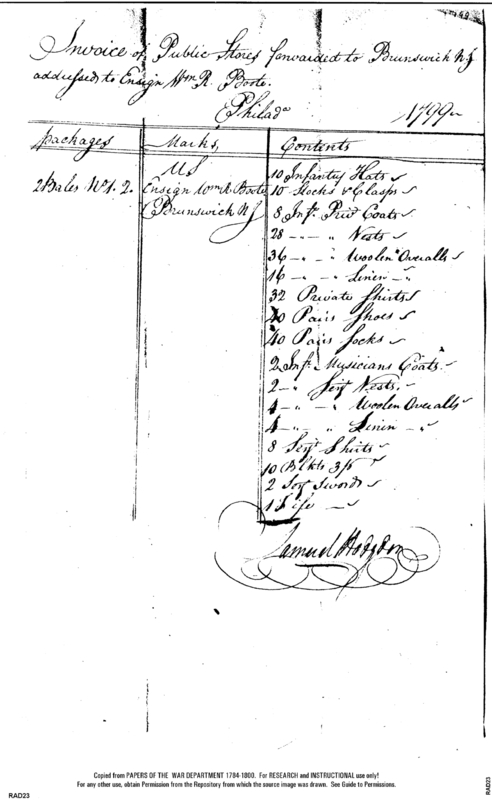 Invoice of Public Stores forwarded to Brunswick NJ
addressed to Ensign Wm R. Boote.
Philada 1799
packages Marks, Contents
US
2 Bales No 1. 2. Ensign Wm R Boote
Brunswick NJ
10 Infantry Hats
10 Stocks & Clasps
8 Inf. Priv Coats
28 - " Vests
36 - " - " Woolen Overalls
16 - " - " Linen - "
32 Private Shirts
40 Pairs Shoes
40 Pairs Socks
2 Inf. Musicians Coats
2 - " Serj Vests
4 - " - " Woolen Overalls
4 - " " Linen - "
8 Serj Shirts
10 Blkts 3 pt
2 Serj Swords
1 Fife
Samuel Hodgdon
Copied from PAPERS OF THE WAR DEPARTMENT 1784-1800. For RESEARCH and INSTRUCTIONAL use only!
For any other use, obtain Permission from the Repository from which the source image was drawn. See Guide to Permissions.
RAD23
RAD23